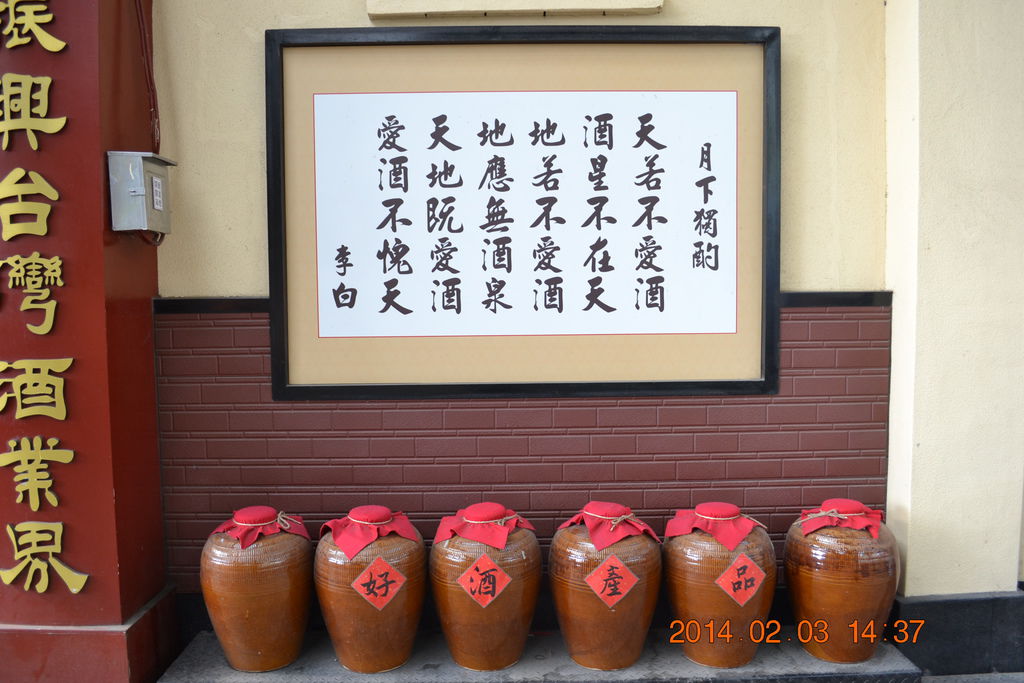 月下獨酌
天若不愛酒
酒星不在天
地若不愛酒
地應無酒泉
天地既愛酒
愛酒不愧天
李白
振興台灣酒業界
好
酒
產
品
2014.02.03 14:37